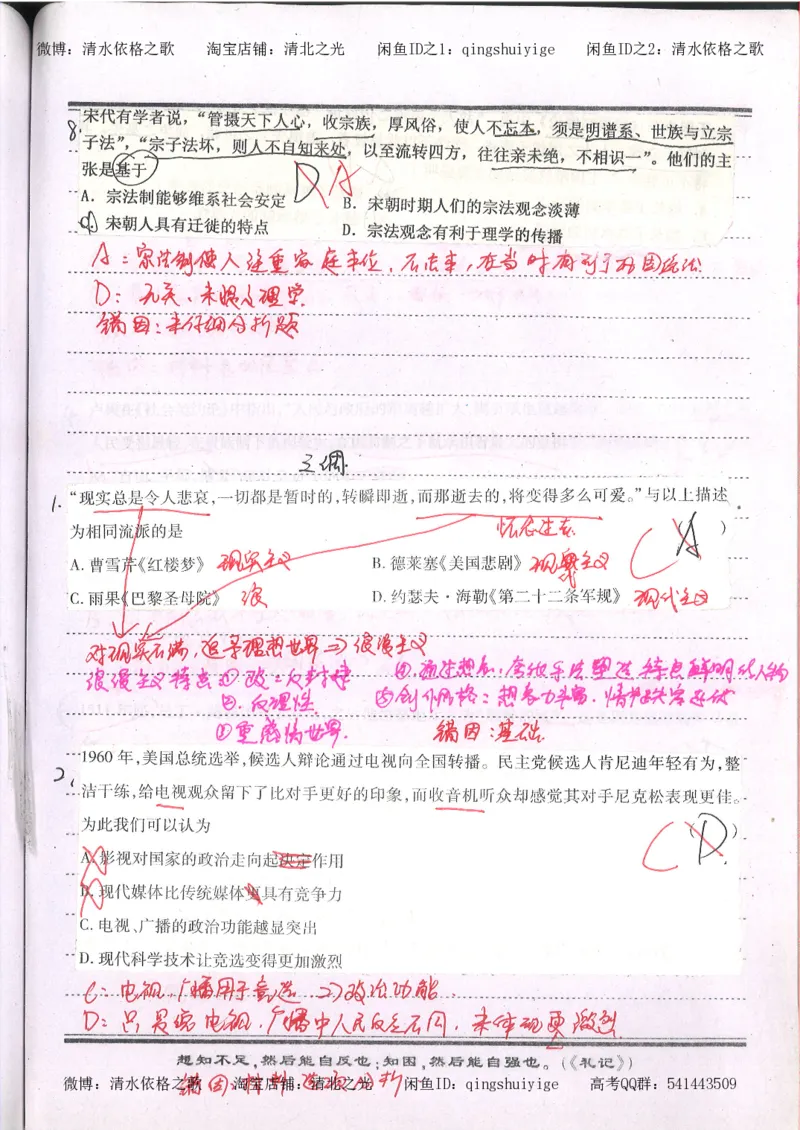 微博：清水依格之歌 淘宝店铺：清北之光 闲鱼ID之1：qingshuiyige 闲鱼ID之2：清水依格之歌
8. 宋代有学者说，“管摄天下人心，收宗族，厚风俗，使人不忘本，须是明谱系、世族与立宗
子法”，“宗子法坏，则人不自知来处，以至流转四方，往往亲未绝，不相识一”。他们的主
张是基于 D A
A．宗法制能够维系社会安定 B．宋朝时期人们的宗法观念淡薄
C．宋朝人具有迁徙的特点 D．宗法观念有利于理学的传播
A：宗法制使人注重家庭本位，在当时有利于统治
D：无关，未提及理学
错因：未仔细分析题
三调
1. “现实总是令人悲哀，一切都是暂时的，转瞬即逝，而那逝去的，将变得多么可爱。”与以上描述
为相同流派的是 怀念过去 C （A）
A.曹雪芹《红楼梦》 现实主义 B.德莱塞《美国悲剧》 现实主义
C.雨果《巴黎圣母院》 浪 D.约瑟夫·海勒《第二十二条军规》 现代主义
对现实不满，追寻理想世界⇒浪漫主义
浪漫主义特点①政：反封建 ④通过想象、夸张手法塑造特点鲜明的人物
②反理性 ⑤创作风格：想象力丰富，情节跌宕起伏
③重感情世界. 错因：基础
2. 1960年，美国总统选举，候选人辩论通过电视向全国转播。民主党候选人肯尼迪年轻有为，整
洁干练，给电视观众留下了比对手更好的印象，而收音机听众却感觉其对手尼克松表现更佳。
为此我们可以认为 C （D）
A.影视对国家的政治走向起决定作用
B.现代媒体比传统媒体更具有竞争力
C.电视、广播的政治功能越显突出
D.现代科学技术让竞选变得更加激烈
C：电视、广播用于竞选⇒政治功能
D：只是说电视、广播中人民反应不同，未体现更激烈
想知不足，然后能自反也；知困，然后能自强也。（《礼记》）
错因：材料选项分析
微博：清水依格之歌 淘宝店铺：清北之光 闲鱼ID：qingshuiyige 高考QQ群：541443509